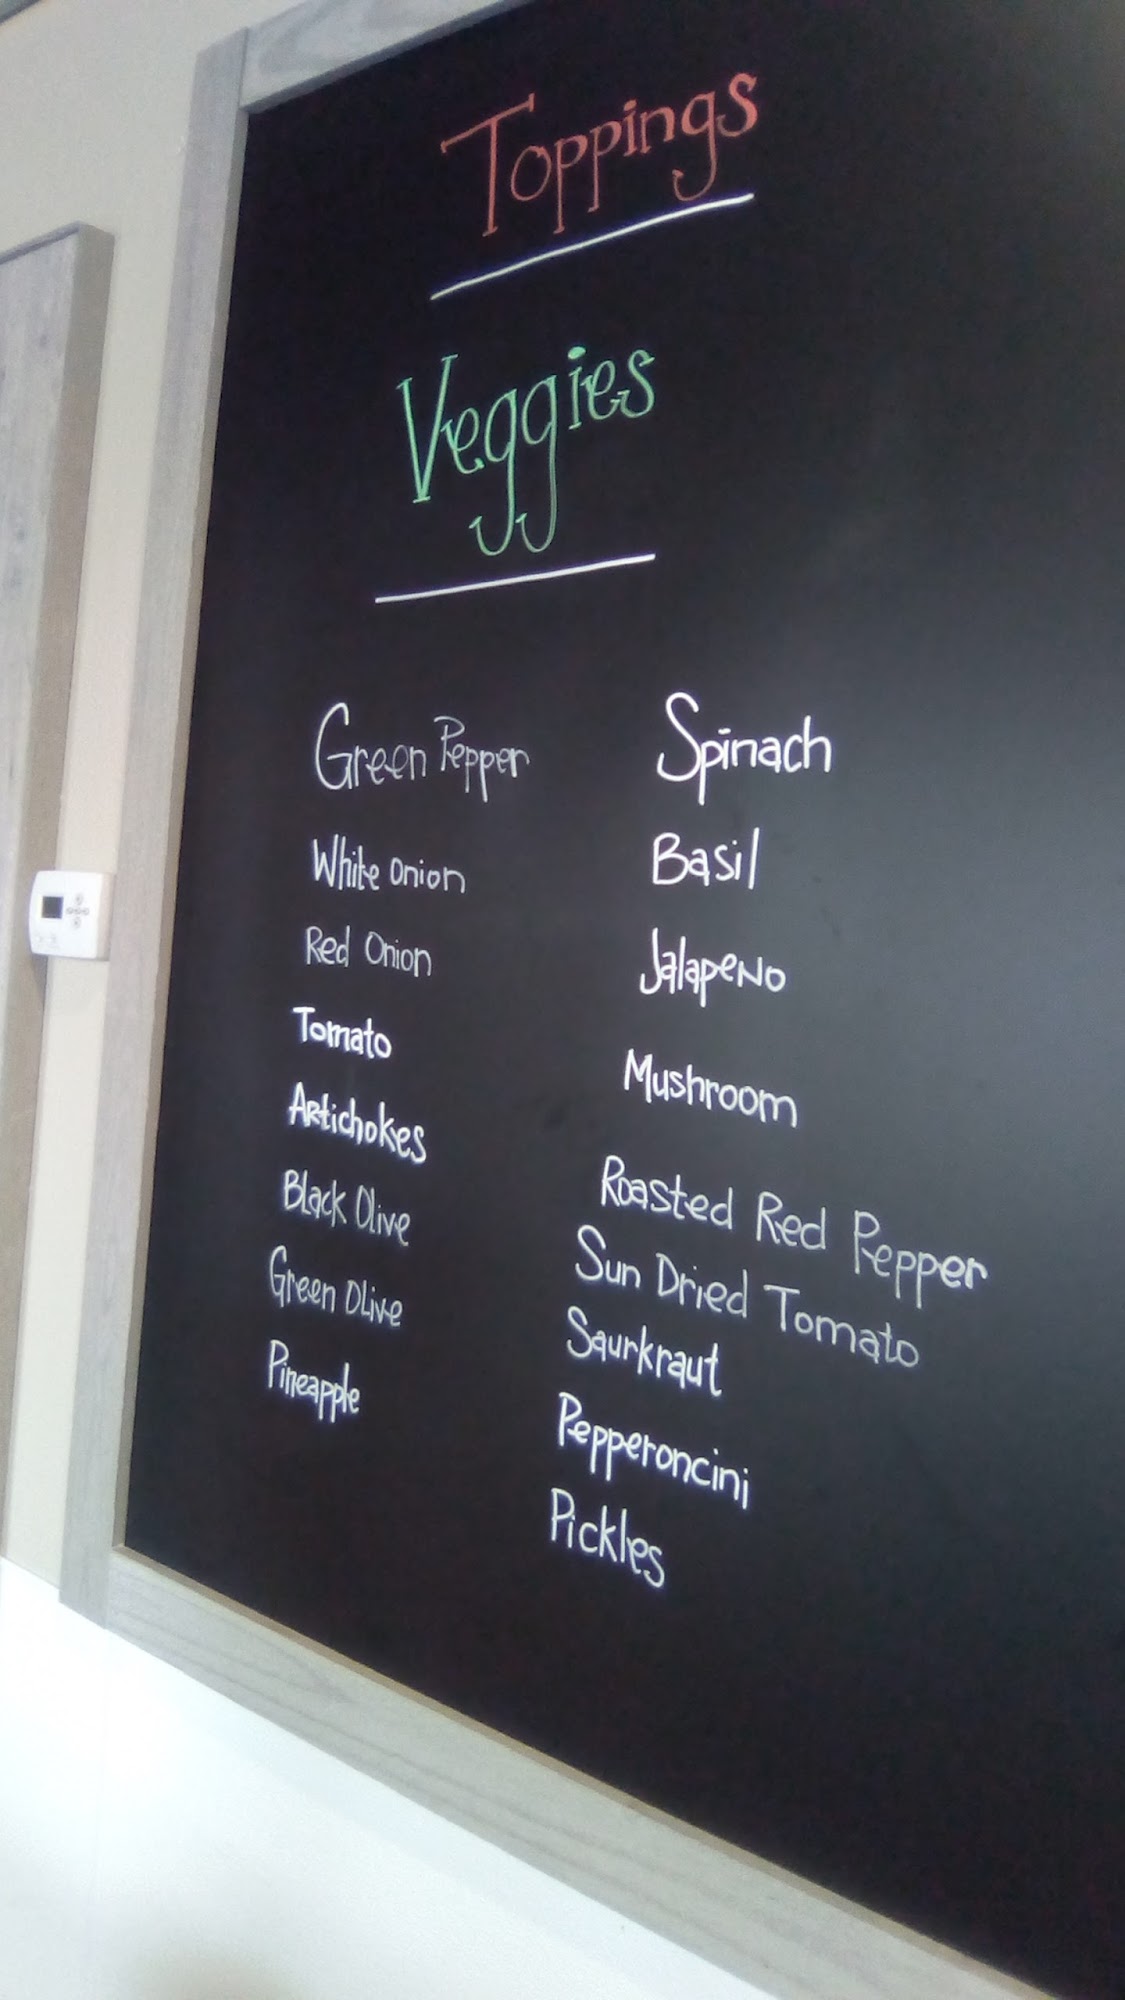 Toppings
Veggies
Green Pepper
White Onion
Red Onion
Tomato
Artichokes
Black Olive
Green Olive
Pineapple
Spinach
Basil
Jalapeno
Mushroom
Roasted Red Pepper
Sun Dried Tomato
Saurkraut
Pepperoncini
Pickles